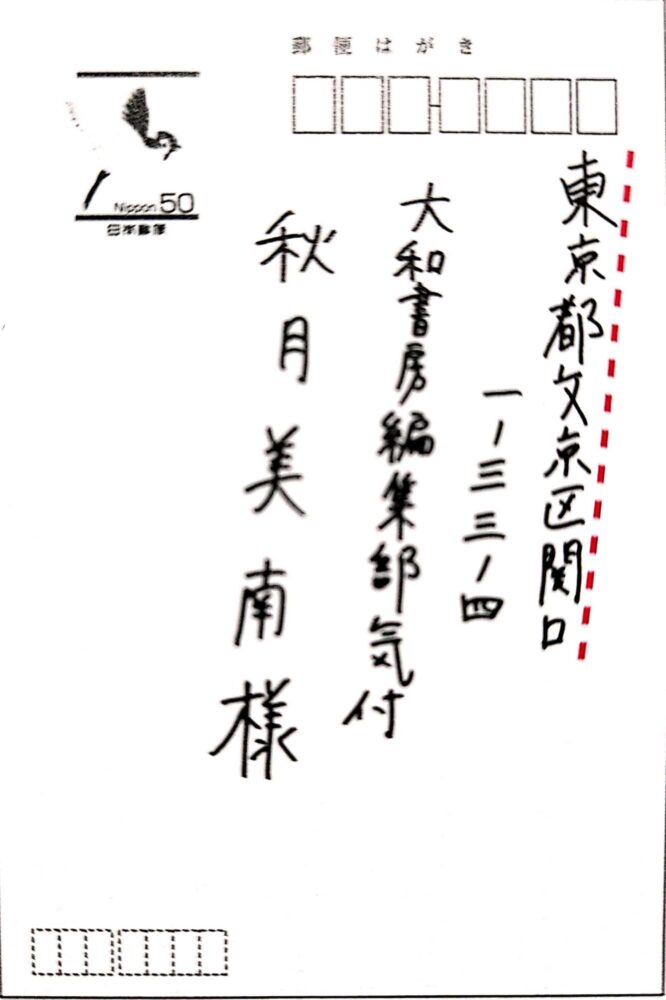 郵便はがき
Nippon 50
日本郵便
東京都文京区関口
一ー三三ー四
大和書房編集部気付
秋月美南様